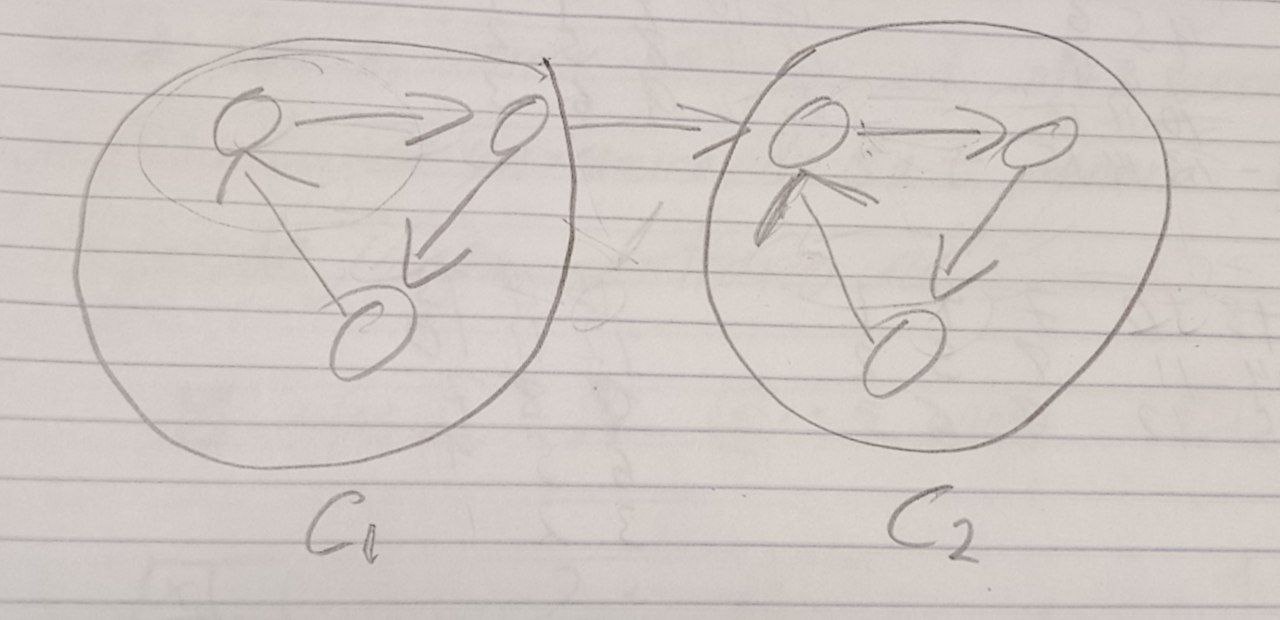 C1
C2